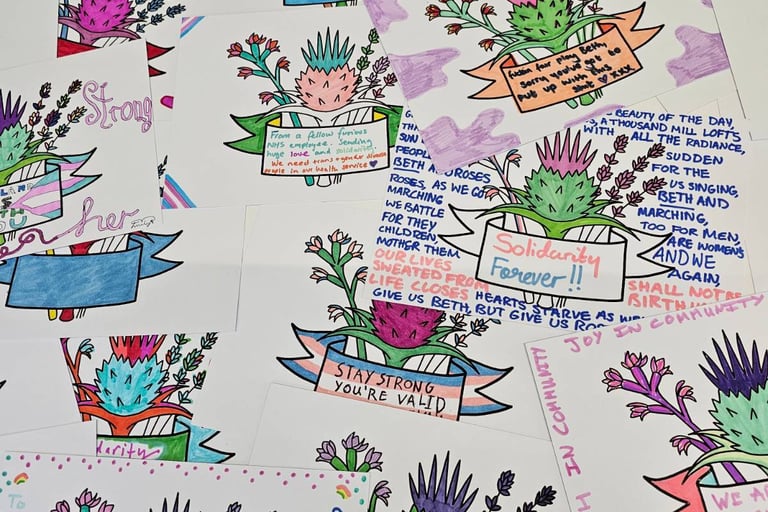 Strong
her
From a fellow furious
NHS employee. Sending
huge love and solidarity.
We need trans + gender diverse
people in our health service
fuckin fair play Beth
sorry you've got to
put up with this
xxx
BEAUTY OF THE DAY,
A THOUSAND MILL LOFTS
WITH ALL THE RADIANCE,
SUN SUDDEN
PEOPLE FOR THE
BETH ROSES US SINGING,
ROSES, AS WE GO BETH AND
MARCHING MARCHING,
WE BATTLE TOO FOR MEN,
FOR THEY ARE WOMEN'S
CHILDREN, AND WE
MOTHER THEM AGAIN,
OUR LIVES SHALL NOT BE
SWEATED FROM BIRTH
LIFE CLOSES HEARTS STARVE AS WE
GIVE US BETH, BUT GIVE US
Solidarity
Forever!!
STAY STRONG
YOU'RE VALID
JOY IN COMMUNITY
IN COMMUNITY
WE
To